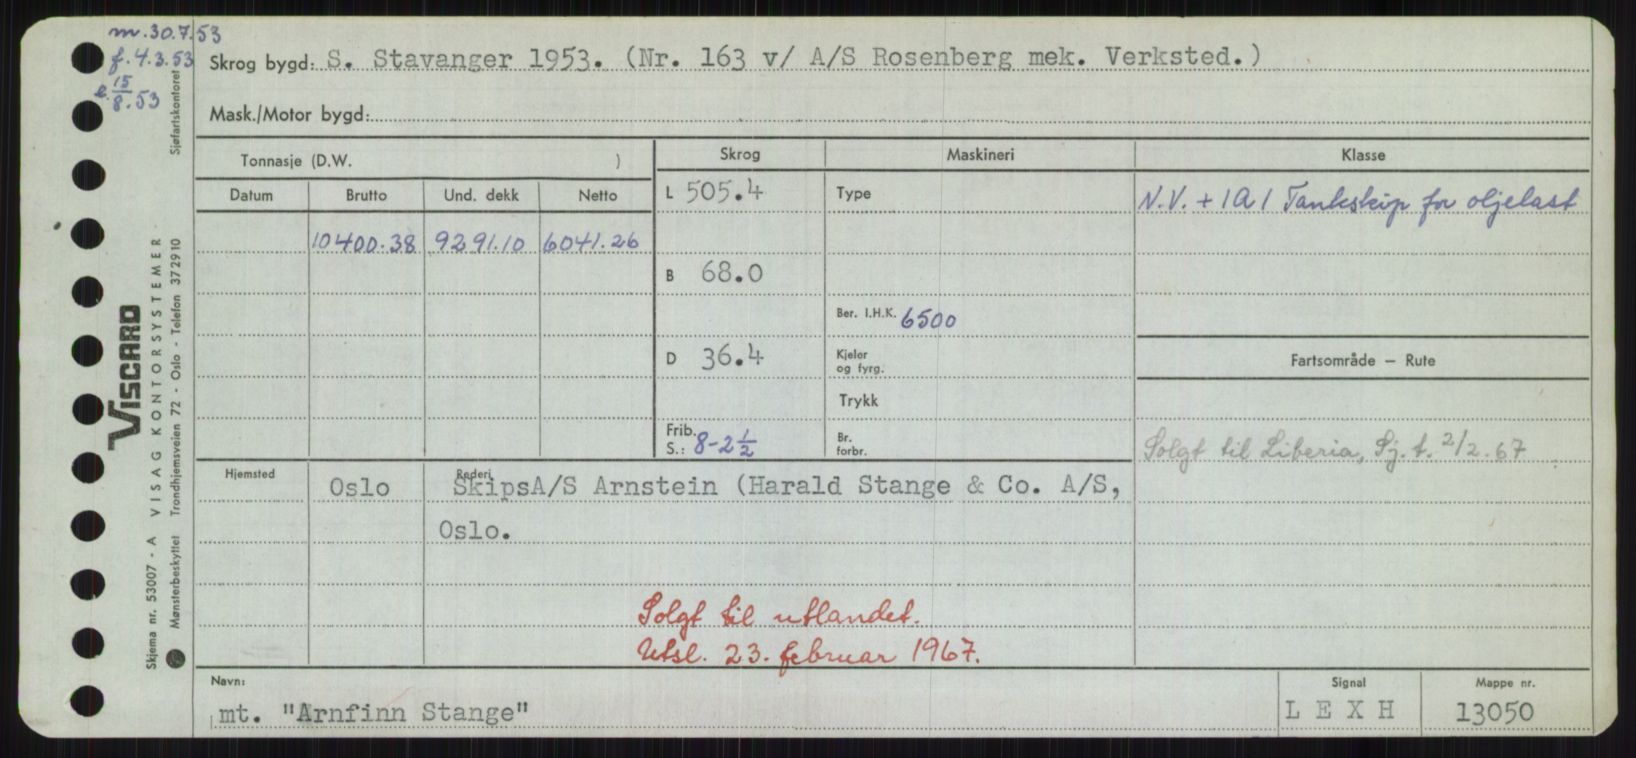 m.30.7.53
f.4.3.53
e. 15/8.53
Skrog bygd: S. Stavanger 1953. (Nr. 163 v/ A/S Rosenberg mek. Verksted.)
Mask./Motor bygd:
Tonnasje (D.W. )
Skrog Maskineri Klasse
Datum Brutto Und. dekk Netto
L 505.4 Type N.V. + 1A1 Tankskip for oljelast
10400.38 9291.10 6041.26
B 68.0
Ber. I.H.K. 6500
D 36.4 Kjeler og fyrg. Fartsområde — Rute
Trykk
Frib. S.: 8-2 1/2 Br. forbr. Solgt til Liberia, Sj.t. 2/2.67
Hjemsted Rederi
Oslo SkipsA/S Arnstein (Harald Stange & Co. A/S,
Oslo.
Solgt til utlandet.
Utsl. 23. februar 1967.
Navn: Signal Mappe nr.
mt. "Arnfinn Stange" L E X H 13050
Skjema nr. 53007 - A VISAG KONTORSYSTEMER
VISCARD
Mønsterbeskyttet Trondhjemsveien 72 - Oslo - Telefon 372910 Sjøfartskontoret